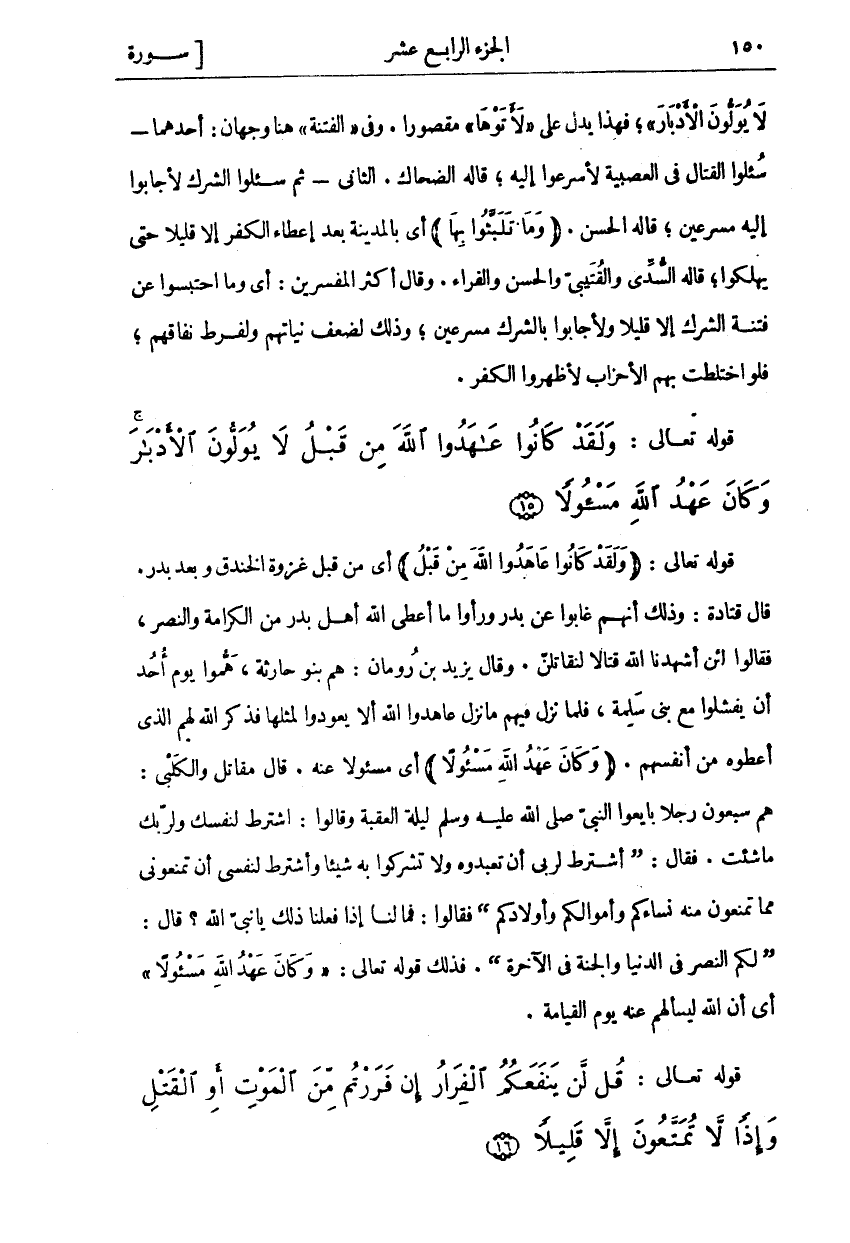 ١٥٠ الجزء الرابع عشر [ سـورة
لَا يُوَلُّونَ الْأَدْبَارَ» ؛ فهذا يدل على «لَأَتَوْهَا» مقصورا . وفى «الفتنة» هنا وجهان : أحدهما —
سُئلوا القتال فى العصبية لأسرعوا إليه ؛ قاله الضحاك . الثانى — ثم سـئلوا الشرك لأجابوا
إليه مسرعين ؛ قاله الحسن . ﴿ وَمَا تَلَبَّثُوا بِهَا ﴾ أى بالمدينة بعد إعطاء الكفر إلا قليلا حتى
يهلكوا ؛ قاله السُّدِّى والقُتَيبىّ والحسن والفراء . وقال أكثر المفسرين : أى وما احتبسوا عن
فتنـة الشرك إلا قليلا ولأجابوا بالشرك مسرعين ؛ وذلك لضعف نياتهم ولفـرط نفاقهم ؛
فلو اختلطت بهم الأحزاب لأظهروا الكفر .
قوله تعـالى : وَلَقَدْ كَانُوا عَـٰهَدُوا ٱللَّهَ مِن قَبْـلُ لَا يُوَلُّونَ ٱلْأَدْبَـٰرَ ۚ
وَكَانَ عَهْدُ ٱللَّهِ مَسْـُٔولًا ﴿١٥﴾
قوله تعالى : ﴿ وَلَقَدْ كَانُوا عَاهَدُوا اللَّهَ مِنْ قَبْلُ ﴾ أى من قبل غزوة الخندق و بعد بدر .
قال قتادة : وذلك أنهـم غابوا عن بدر ورأوا ما أعطى الله أهـل بدر من الكرامة والنصر ،
فقالوا ائن أشهدنا الله قتالا لنقاتلنّ . وقال يزيد بن رُومان : هم بنو حارثة ، هَمُّوا يوم أُحُد
أن يفشلوا مع بنى سَلِمة ، فلما نزل فيهم مانزل عاهدوا الله ألا يعودوا لمثلها فذكر الله لهم الذى
أعطوه من أنفسهم . ﴿ وَكَانَ عَهْدُ اللَّهِ مَسْئُولًا ﴾ أى مسئولا عنه . قال مقاتل والكَلْبى :
هم سبعون رجلا بايعوا النبىّ صلى الله عليـه وسلم ليلة العقبة وقالوا : اشترط لنفسك ولربّك
ماشئت . فقال : ” أشـترط لربى أن تعبدوه ولا تشركوا به شيئا وأشترط لنفسى أن تمنعونى
مما تمنعون منه نساءكم وأموالكم وأولادكم “ فقالوا : فما لنـا إذا فعلنا ذلك يانبىّ الله ؟ قال :
” لكم النصر فى الدنيا والجنة فى الآخرة “ . فذلك قوله تعالى : « وَكَانَ عَهْدُ اللَّهِ مَسْئُولًا »
أى أن الله ليسألهم عنه يوم القيامة .
قوله تعـالى : قُـل لَّن يَنفَعَكُمُ ٱلْفِرَارُ إِن فَرَرْتُم مِّنَ ٱلْمَوْتِ أَوِ ٱلْقَتْلِ
وَإِذًا لَّا تُمَتَّعُونَ إِلَّا قَلِيـلًا ﴿١٦﴾